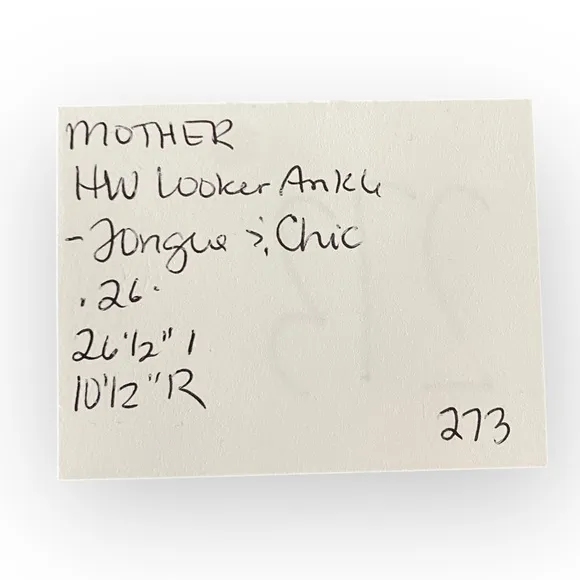 MOTHER
HW Looker Ankle
- Tongue & Chic
.26.
26 1/2" I
10 1/2" R
273